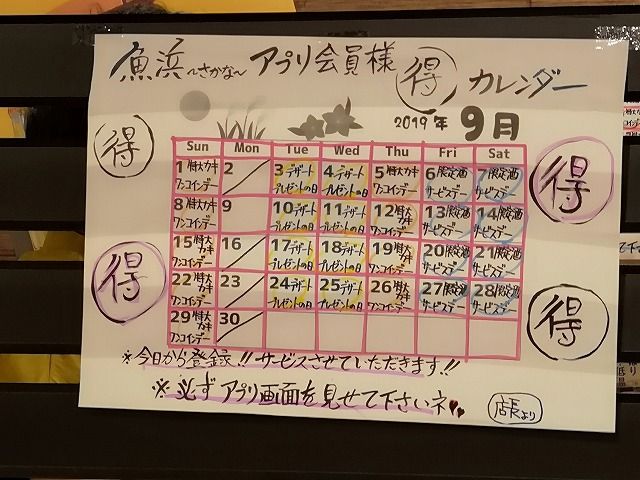 魚浜～さかな～ アプリ会員様 得 カレンダー
2019年 9月
得
得
得
得
Sun Mon Tue Wed Thu Fri Sat
1 特大カキ ワンコインデー 2 3 デザート プレゼントの日 4 デザート プレゼントの日 5 特大カキ ワンコインデー 6 限定酒 サービスデー 7 限定酒 サービスデー
8 特大カキ ワンコインデー 9 10 デザート プレゼントの日 11 デザート プレゼントの日 12 特大カキ ワンコインデー 13 限定酒 サービスデー 14 限定酒 サービスデー
15 特大カキ ワンコインデー 16 17 デザート プレゼントの日 18 デザート プレゼントの日 19 特大カキ ワンコインデー 20 限定酒 サービスデー 21 限定酒 サービスデー
22 特大カキ ワンコインデー 23 24 デザート プレゼントの日 25 デザート プレゼントの日 26 特大カキ ワンコインデー 27 限定酒 サービスデー 28 限定酒 サービスデー
29 特大カキ ワンコインデー 30
※今日から登録!!サービスさせていただきます!!
※必ずアプリ画面を見せて下さいネ
店長より